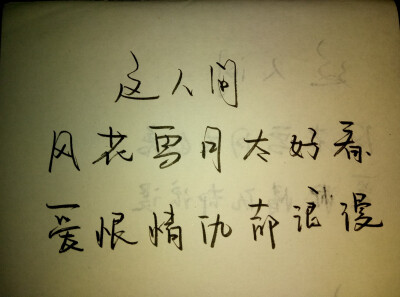 这人间
风花雪月太好看
爱恨情仇都浪漫